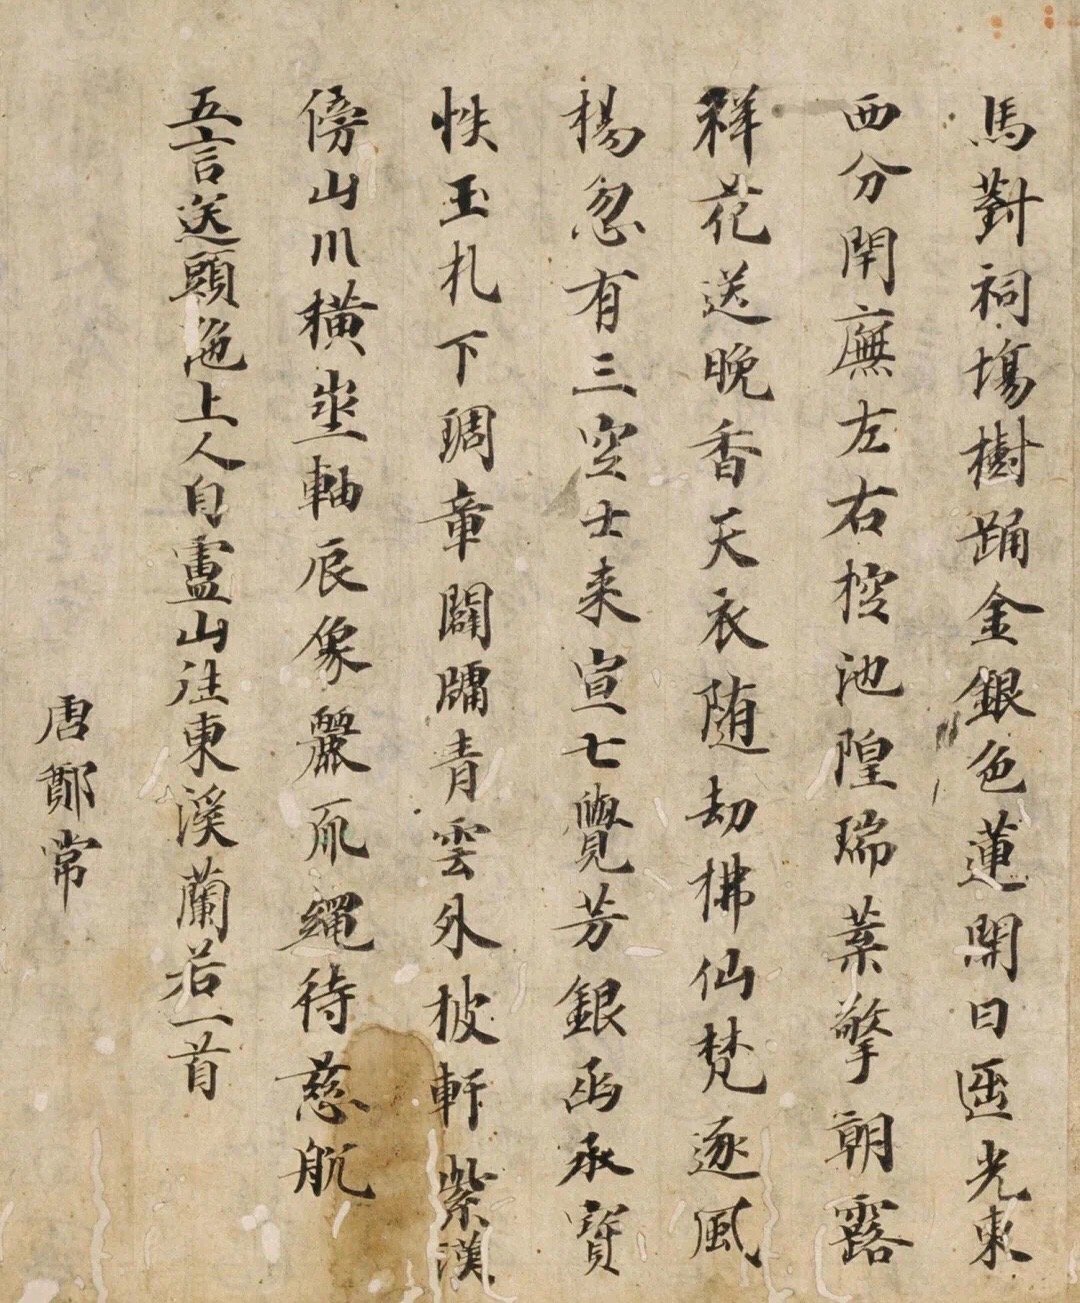 馬對祠塲樹踊金銀色蓮開日⿺辶光東
西分閈廡左右控池隍瑞葉擎朝露
祥花送晚香天衣随劫拂仙梵逐風
楊忽有三空士来宣七覺芳銀函承寳
帙玉札下琱章闢牖青雲外披軒紫漢
傍山川横㘴軸辰像麗爪繩待慈航
五言送頭陁上人自廬山往東溪蘭若一首
唐鄭常